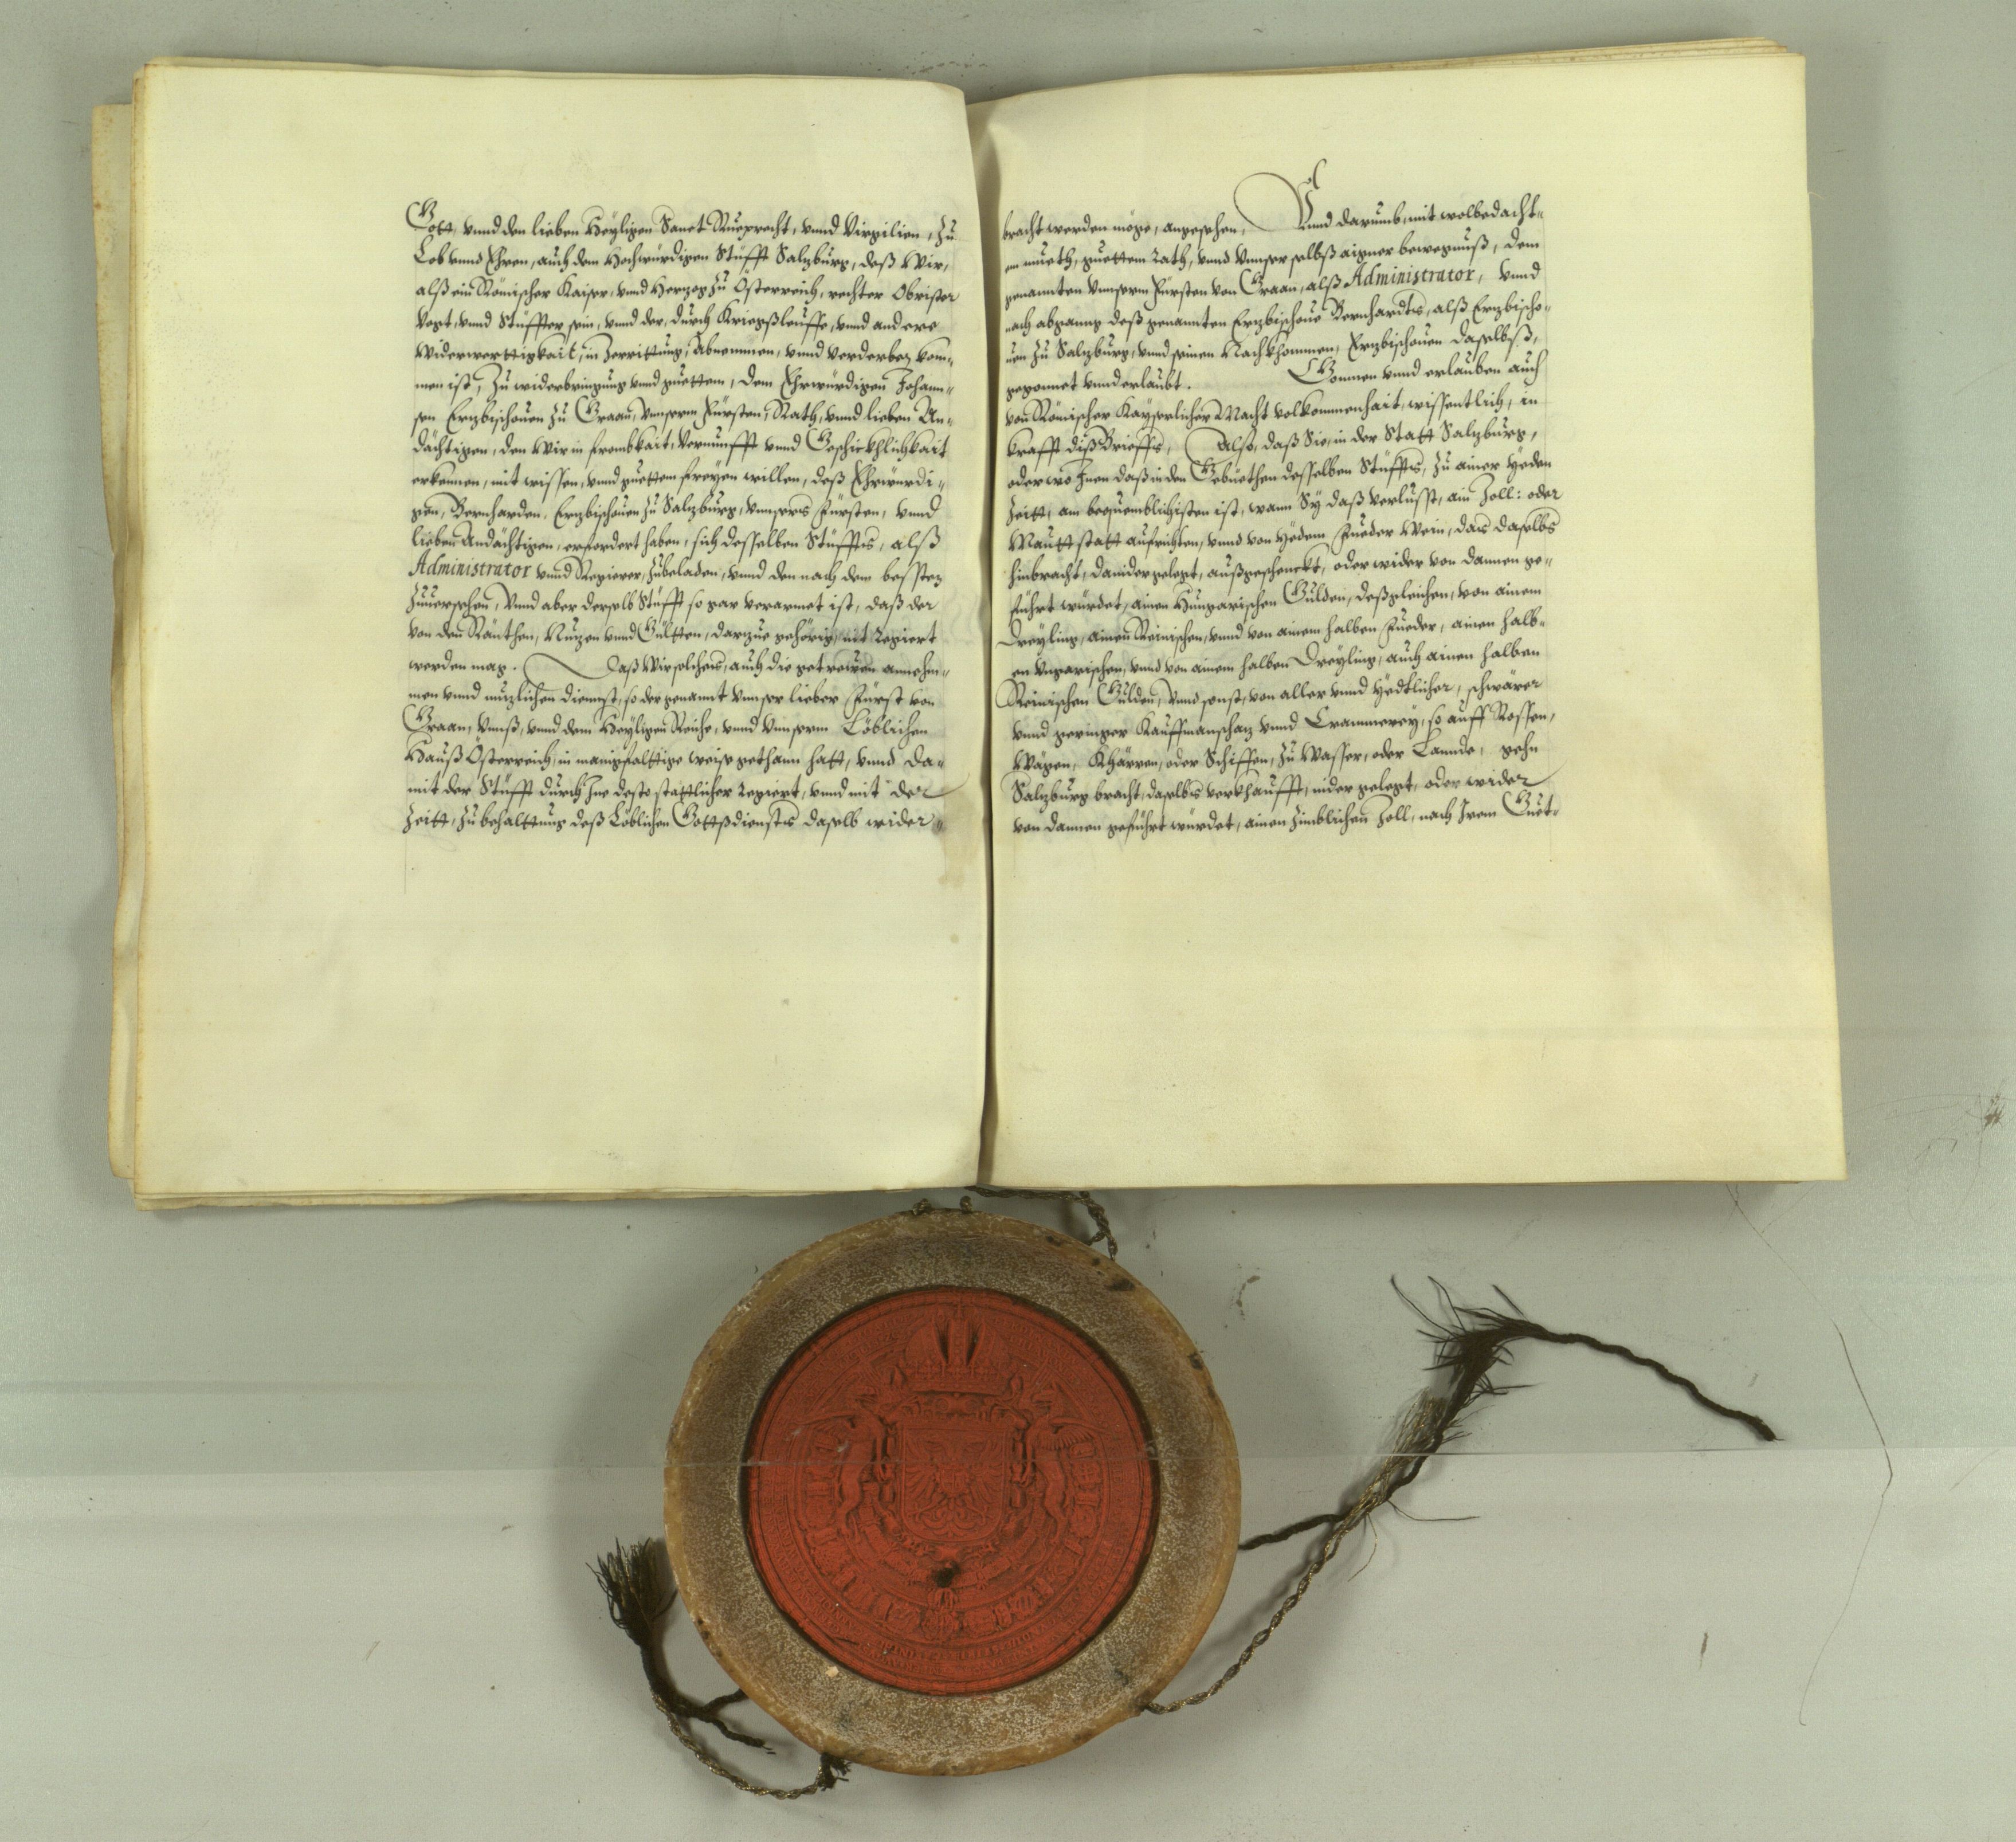 Gott, vnnd den lieben Heyligen Sanct Rueprecht, vnnd Virgilien, zu
Lob vnnd Ehren, auch dem Hochwürdigen Stüfft Salzburg, deß Wir,
alß ein Römischer Kaiser, vnnd Herzog zu Österreich, rechter Obrister
Vogt, vnnd Stüffter sein, vnnd der, durch Kriegßleuffe, vnnd andere
Widerwerttigkait, in Zerrittung, Abnemmen, vnnd Verderben kom-
men ist, zu widerbringung vnnd guettem, dem Ehrwürdigen Johann-
sen Erzbischouen zu Graan, vnnserm Fürsten, Rath, vnnd lieben An-
dächtigen, den Wir in frombkait, Vernunfft vnnd Geschickhlichkait
erkennen, mit wissen, vnnd guetten freyen willen, deß Ehrwürdi-
gen, Bernharden, Erzbischouen zu Salzburg, vnnsers Fürsten, vnnd
lieben Andächtigen, erfordert haben, sich desselben Stüffts, alß
Administrator vnnd Regierer, zubeladen, vnnd den nach dem bessten
zuuersehen, Vnnd aber derselb Stüfft so gar verarmet ist, daß der
von den Ränthen, Nuzen vnnd Gültten, darzue gehörig, nit regiert
werden mag. Daß Wir solches, auch die getrewen annehm-
men vnnd nuzlichen diennst, so der genannt vnnser lieber Fürst von
Graan, vnnß, vnnd dem Heyligen Reiche, vnnd Vnnserm Löblichen
Hauß Österreich, in manigfalttige weiß gethann hatt, vnnd da-
mit der Stüfft durch Jne desto stattlicher regiert, vnnd mit der
Zeitt, zu behalttung deß Löblichen Gottßdiensts daselb wider-
bracht werden möge, angesehen, Vnnd darumb, mit wolbedacht-
em mueth, guettem rath, vnnd Vnnser selbß aigner bewegnuß, dem
genannten Vnnserm Fürsten von Graan, alß Administrator, vnnd
nach abganng deß genannten Erzbischoue Bernhardts, alß Erzbischo-
uen zu Salzburg, vnnd seinen Nachkhommen, Erzbischouen daselbß,
gegonnet vnnd erlaubt. Gonnen vnnd erlauben auch
von Römischer Kayserlicher Macht volkommenhait, wissentlich, in
Krafft diß Brieffs, Also, daß Sie, in der Statt Salzburg,
oder wo Jnen daß in den Gebüethen desselben Stüffts, zu ainer Yeden
Zeitt, am bequemblichisten ist, wann Sy daß verlusst, ain Zoll: oder
Mautt statt aufrichten, vnnd von Yedem Fueder Wein, das daselbs
hinbracht, danider gelegt, außgeschenckt, oder wider von dannen ge-
führt würdet, ainen Hungarischen Gulden, deßgleichen, von ainem
Dreyling, ainen Reinischen, vnnd von ainem halben Fueder, ainen halb-
en Vngarischen, vnnd von ainem halben Dreyling, auch ainen halben
Reinischen Gulden, Vnnd sonst, von aller vnnd Yedtlicher, schwärer
vnnd geringer Kauffmanschaz vnnd Crammerey, so auff Rossen,
Wägen, Khärren, oder Schiffen, zu Wasser, oder Lannde, gehn
Salzburg bracht, daselbs verkhaufft, nider gelegt, oder wider
von dannen geführt würdet, ainen zimblichen Zoll, nach Jrem Guet-